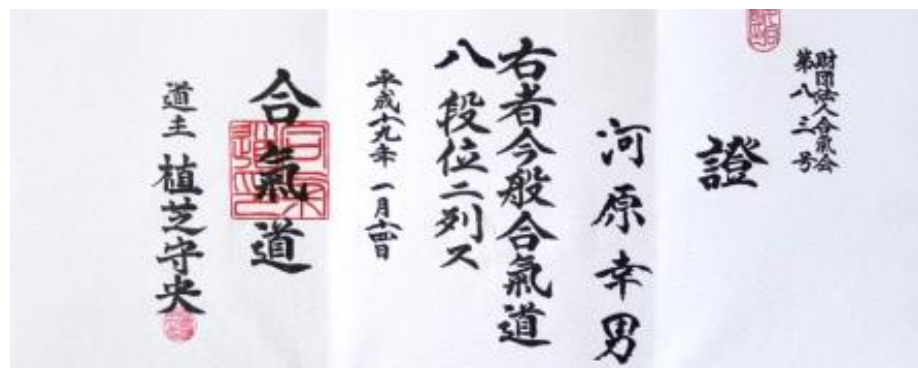 財団法人合氣会
第八三号
證
河原幸男
右者今般合氣道
八段位ニ列ス
平成十九年一月十四日
合氣道
道主 植芝守央